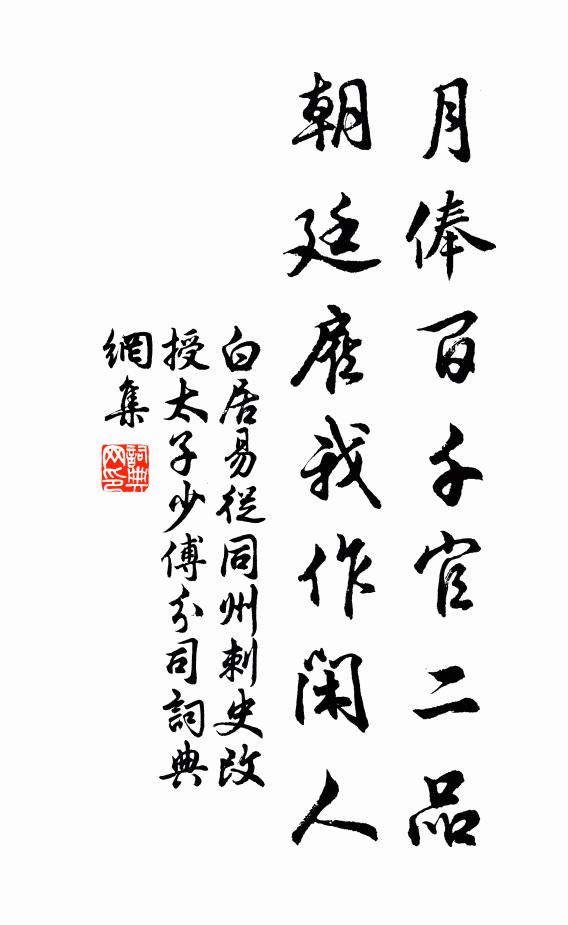 月俸百千官二品
朝廷雇我作閑人
白居易從同州刺史改
授太子少傅分司詞典
網集
詞典网印